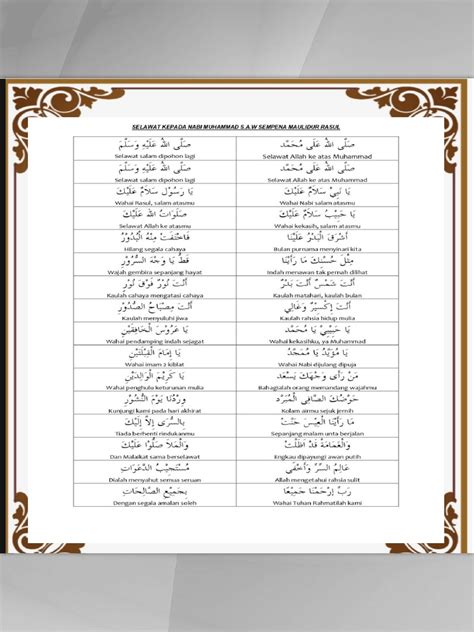 SELAWAT KEPADA NABI MUHAMMAD S.A.W SEMPENA MAULIDUR RASUL
صَلَّى اللهُ عَلَى مُحَمَّد
Selawat Allah ke atas Muhammad
صَلَّى اللهُ عَلَيْهِ وَسَلَّمَ
Selawat salam dipohon lagi
صَلَّى اللهُ عَلَى مُحَمَّد
Selawat Allah ke atas Muhammad
صَلَّى اللهُ عَلَيْهِ وَسَلَّمَ
Selawat salam dipohon lagi
يَا نَبِيْ سَلَامٌ عَلَيْكَ
Wahai Nabi salam atasmu
يَا رَسُوْل سَلَامٌ عَلَيْكَ
Wahai Rasul, salam atasmu
يَا حَبِيْبْ سَلَامٌ عَلَيْكَ
Wahai kekasih, salam atasmu
صَلَوَاتُ اللهِ عَلَيْكَ
Selawat Allah ke atasmu
أَشْرَقَ الْبَدْرُ عَلَيْنَا
Bulan purnama menyinari kita
فَاخْتَفَتْ مِنْهُ الْبُدُوْرُ
Hilang segala cahaya
مِثْلَ حُسْنِكَ مَا رَأَيْنَا
Indah menawan tak pernah dilihat
قَطُّ يَا وَجْهَ السُّرُوْرِ
Wajah gembira sepanjang hayat
أَنْتَ شَمْسٌ أَنْتَ بَدْرٌ
Kaulah matahari, kaulah bulan
أَنْتَ نُوْرٌ فَوْقَ نُوْرٍ
Kaulah cahaya mengatasi cahaya
أَنْتَ إِكْسِيْرٌ وَغَالِي
Kaulah rahsia hidup mulia
أَنْتَ مِصْبَاحُ الصُّدُوْرِ
Kaulah menyuluhi jiwa
يَا حَبِيْبِيْ يَا مُحَمَّد
Wahai kekasihku, ya Muhammad
يَا عَرُوْسَ الْخَافِقَيْنِ
Wahai pendamping indah sejagat
يَا مُؤَيَّدْ يَا مُمَجَّدْ
Wahai Nabi dijulang dipuja
يَا إِمَامَ الْقِبْلَتَيْنِ
Wahai imam 2 kiblat
مَنْ رَأَى وَجْهَكَ يَسْعَدْ
Bahagialah orang memandang wajahmu
يَا كَرِيْمَ الْوَالِدَيْنِ
Wahai penghulu keturunan mulia
حَوْضُكَ الصَّافِي الْمُبَرَّدْ
Kolam airmu sejuk jernih
وِرْدُنَا يَوْمَ النُّشُوْرِ
Kunjungi kami pada hari akhirat
مَا رَأَيْنَا الْعِيْسَ حَنَّتْ
Sepanjang malam unta berjalan
بِالسُّرَى إِلَّا إِلَيْكَ
Tiada berhenti rindukanmu
وَالْغَمَامَةُ قَدْ أَظَلَّتْ
Engkau dipayungi awan putih
وَالْمَلَا صَلُّوْا عَلَيْكَ
Dan Malaikat sama berselawat
عَالِمُ السِّرِّ وَأَخْفَى
Allah mengetahui rahsia sulit
مُسْتَجِيْبُ الدَّعَوَاتِ
Dialah menyahut semua seruan
رَبِّ إِرْحَمْنَا جَمِيْعًا
Wahai Tuhan Rahmatilah kami
بِجَمِيْعِ الصَّالِحَاتِ
Dengan segala amalan soleh